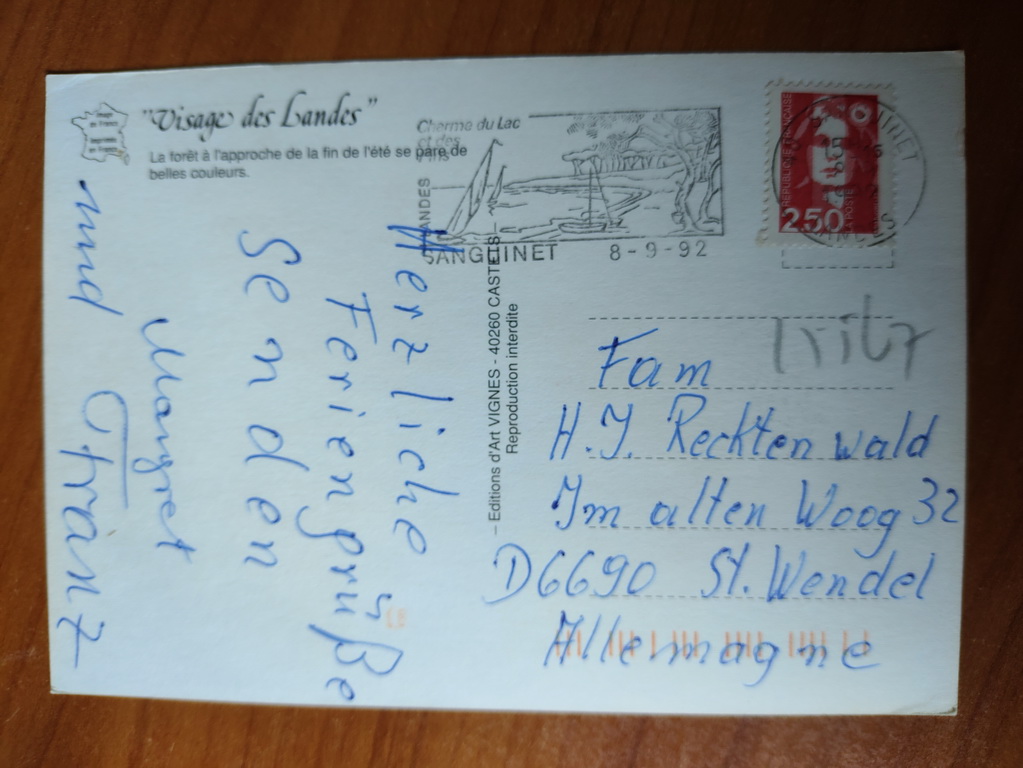 Image
en France
Imprimé
en France
"Visage des Landes"
La forêt à l'approche de la fin de l'été se pare de
belles couleurs.
Charme du Lac
et des
LANDES
SANGUINET 8-9-92
RÉPUBLIQUE FRANÇAISE
2,50
LA POSTE
Herzliche
Feriengrüße
Senden
Mangret
und Franz
Editions d'Art VIGNES - 40260 CASTETS
Reproduction interdite
Fam
H.J. Recktenwald
Im alten Woog 32
D6690 St. Wendel
Allemagne